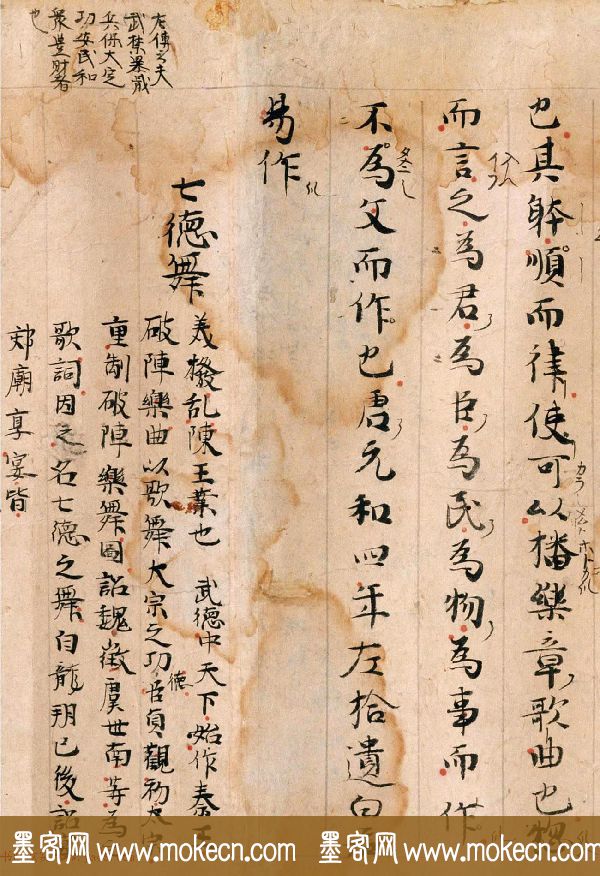 也其躰順而律使可以播樂章歌曲也惣
而言之為君為臣為民為物為事而作
不為文而作也唐元和四年左拾遺白
易作
七德舞
美撥乱陳王業也 武德中天下始作秦王
破陣樂曲以歌舞大宗之功臣貞觀初大宗
德
重制破陣樂舞圖詔魏徵虞世南等為
歌詞因之名七德之舞自龍朔已後詔
郊廟享宴皆
左傳云夫
武禁暴戢
兵保大定
功安民和
衆豊財者
也
墨客网 www.mokecn.com 墨客网 www.mokecn.com